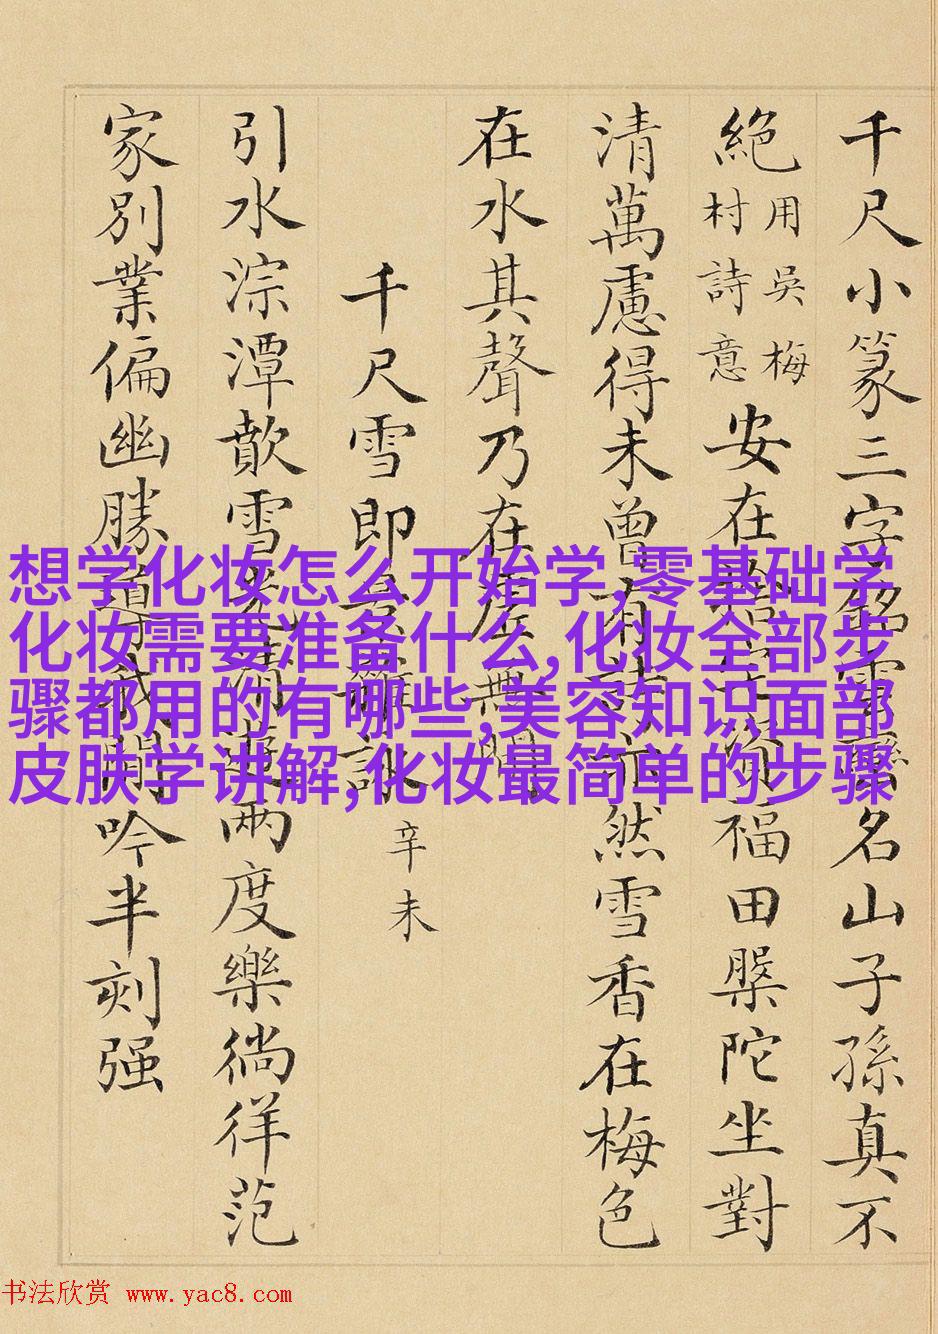 千尺小篆三字名山子孫真不
絕
用吳梅
村詩意
安在福田槃陀坐對
清萬慮得未曾有詩亦然雪香在梅色
在水其聲乃在虛無間
千尺雪即景雜詠 辛未
引水淙潭歕雪兩度樂徜徉范
家別業偏幽勝吟半刻强
想学化妆怎么开始学,零基础学
化妆需要准备什么,化妆全部步
骤都用的有哪些,美容知识面部
皮肤学讲解,化妆最简单的步骤
书法欣赏 www.yac8.com